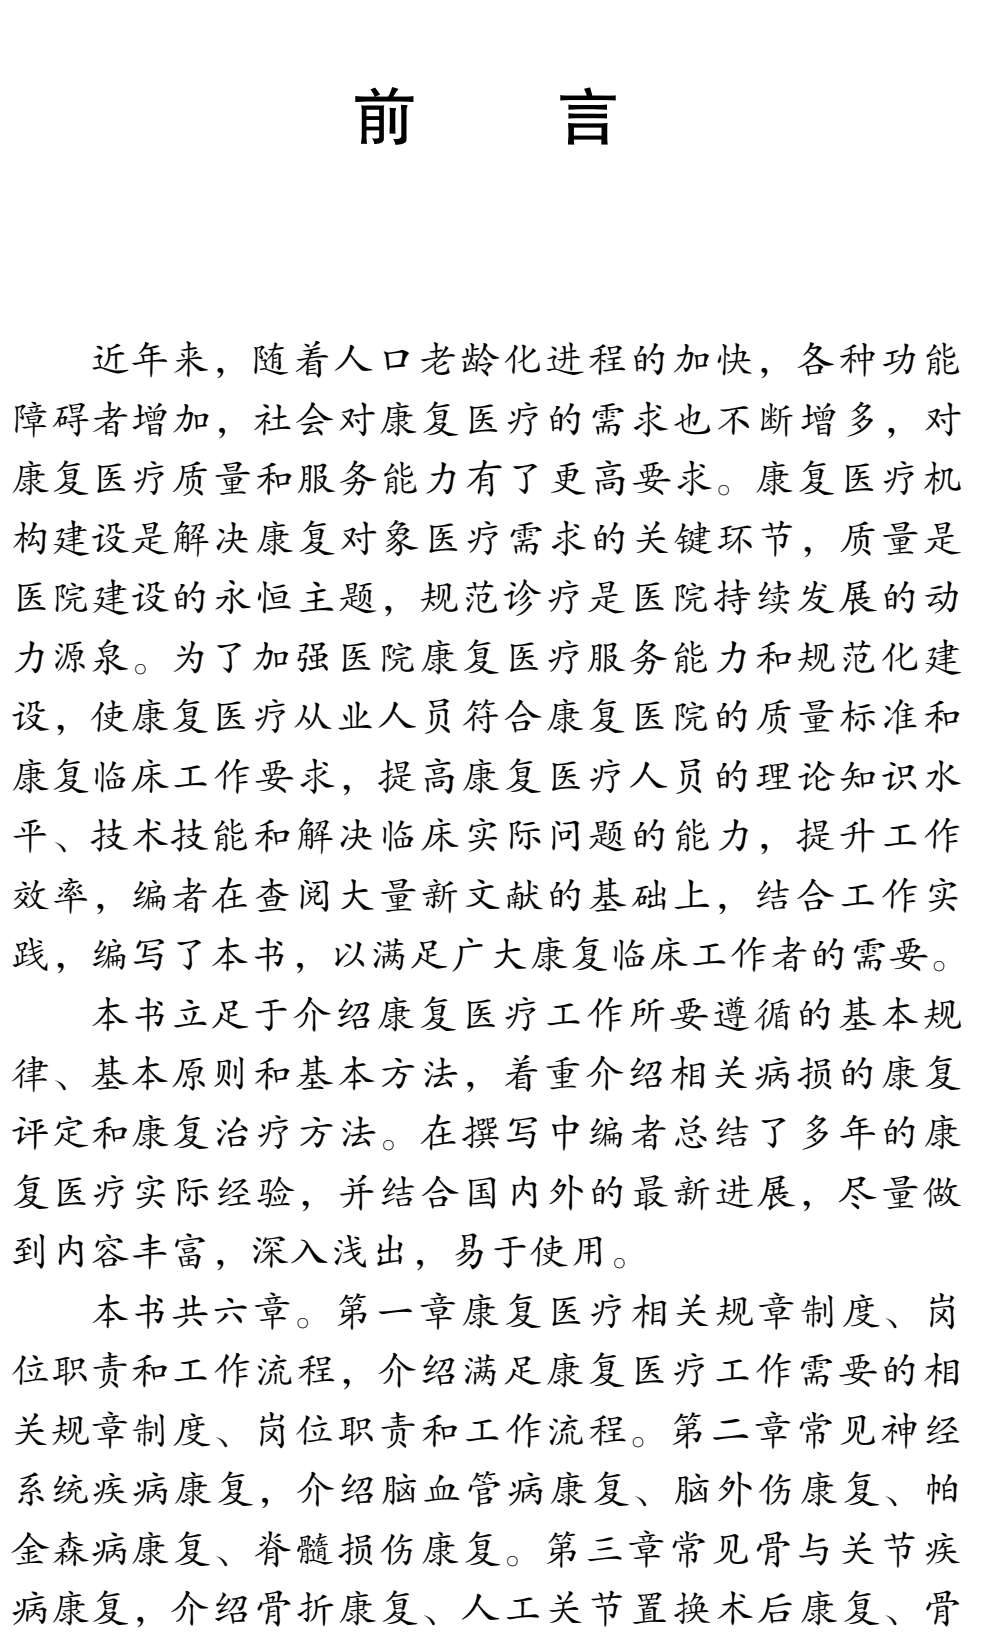 前　　言
近年来，随着人口老龄化进程的加快，各种功能
障碍者增加，社会对康复医疗的需求也不断增多，对
康复医疗质量和服务能力有了更高要求。康复医疗机
构建设是解决康复对象医疗需求的关键环节，质量是
医院建设的永恒主题，规范诊疗是医院持续发展的动
力源泉。为了加强医院康复医疗服务能力和规范化建
设，使康复医疗从业人员符合康复医院的质量标准和
康复临床工作要求，提高康复医疗人员的理论知识水
平、技术技能和解决临床实际问题的能力，提升工作
效率，编者在查阅大量新文献的基础上，结合工作实
践，编写了本书，以满足广大康复临床工作者的需要。
本书立足于介绍康复医疗工作所要遵循的基本规
律、基本原则和基本方法，着重介绍相关病损的康复
评定和康复治疗方法。在撰写中编者总结了多年的康
复医疗实际经验，并结合国内外的最新进展，尽量做
到内容丰富，深入浅出，易于使用。
本书共六章。第一章康复医疗相关规章制度、岗
位职责和工作流程，介绍满足康复医疗工作需要的相
关规章制度、岗位职责和工作流程。第二章常见神经
系统疾病康复，介绍脑血管病康复、脑外伤康复、帕
金森病康复、脊髓损伤康复。第三章常见骨与关节疾
病康复，介绍骨折康复、人工关节置换术后康复、骨